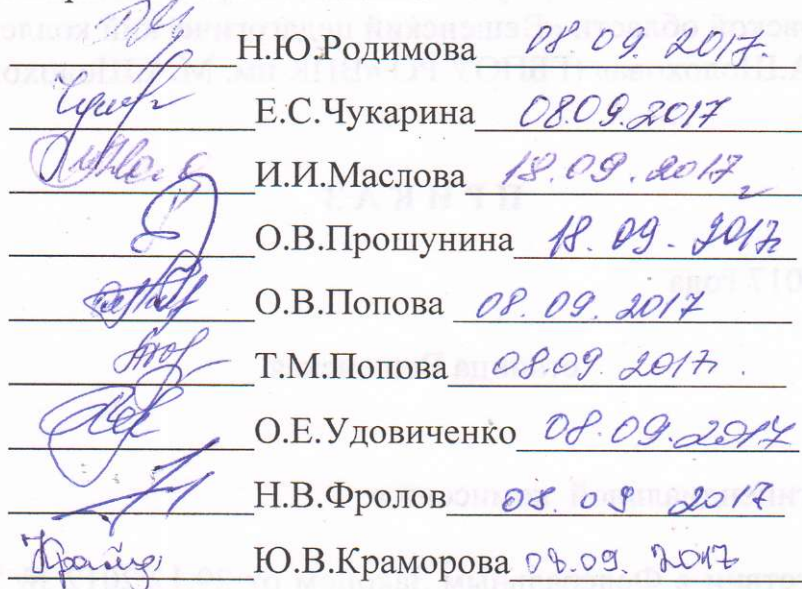 Н.Ю.Родимова 08.09.2017
Е.С.Чукарина 08.09.2017
И.И.Маслова 18.09.2017
О.В.Прошунина 18.09.2017
О.В.Попова 08.09.2017
Т.М.Попова 08.09.2017.
О.Е.Удовиченко 08.09.2017
Н.В.Фролов 08.09 2017
Ю.В.Краморова 08.09.2017